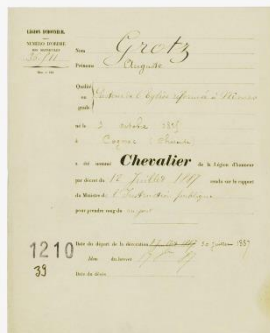 LÉGION D'HONNEUR
NUMÉRO D'ORDRE
Nom Grotz
Prénoms Auguste
Qualité
ou
grade
Pasteur de l'Église réformée à Nîmes
né le 3 octobre
à Cognac
a été nommé Chevalier de la Légion d'honneur
par décret du 12 Juillet 1887 rendu sur le rapport
du Ministre de l'Instruction publique
pour prendre rang du
1210
39
Date du départ de la décoration juillet 1887
Idem du brevet
Date du décès